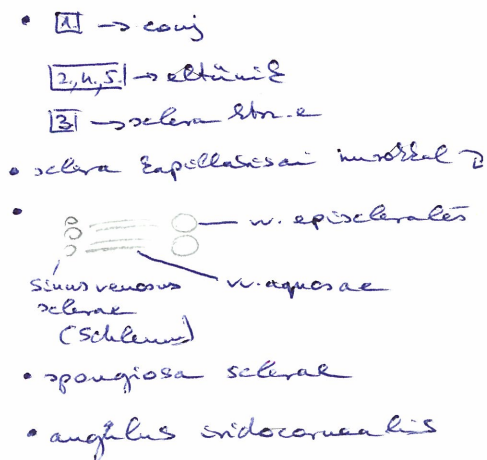 • 1. → conj
2., 4., 5. → eltűnik
3 → sclera str-e
• sclera kapillárisai
• vv. episclerales
sinus venosus sclerae (Schlemmi)
vv. aquosae
• spongiosa sclerae
• angulus iridocornealis